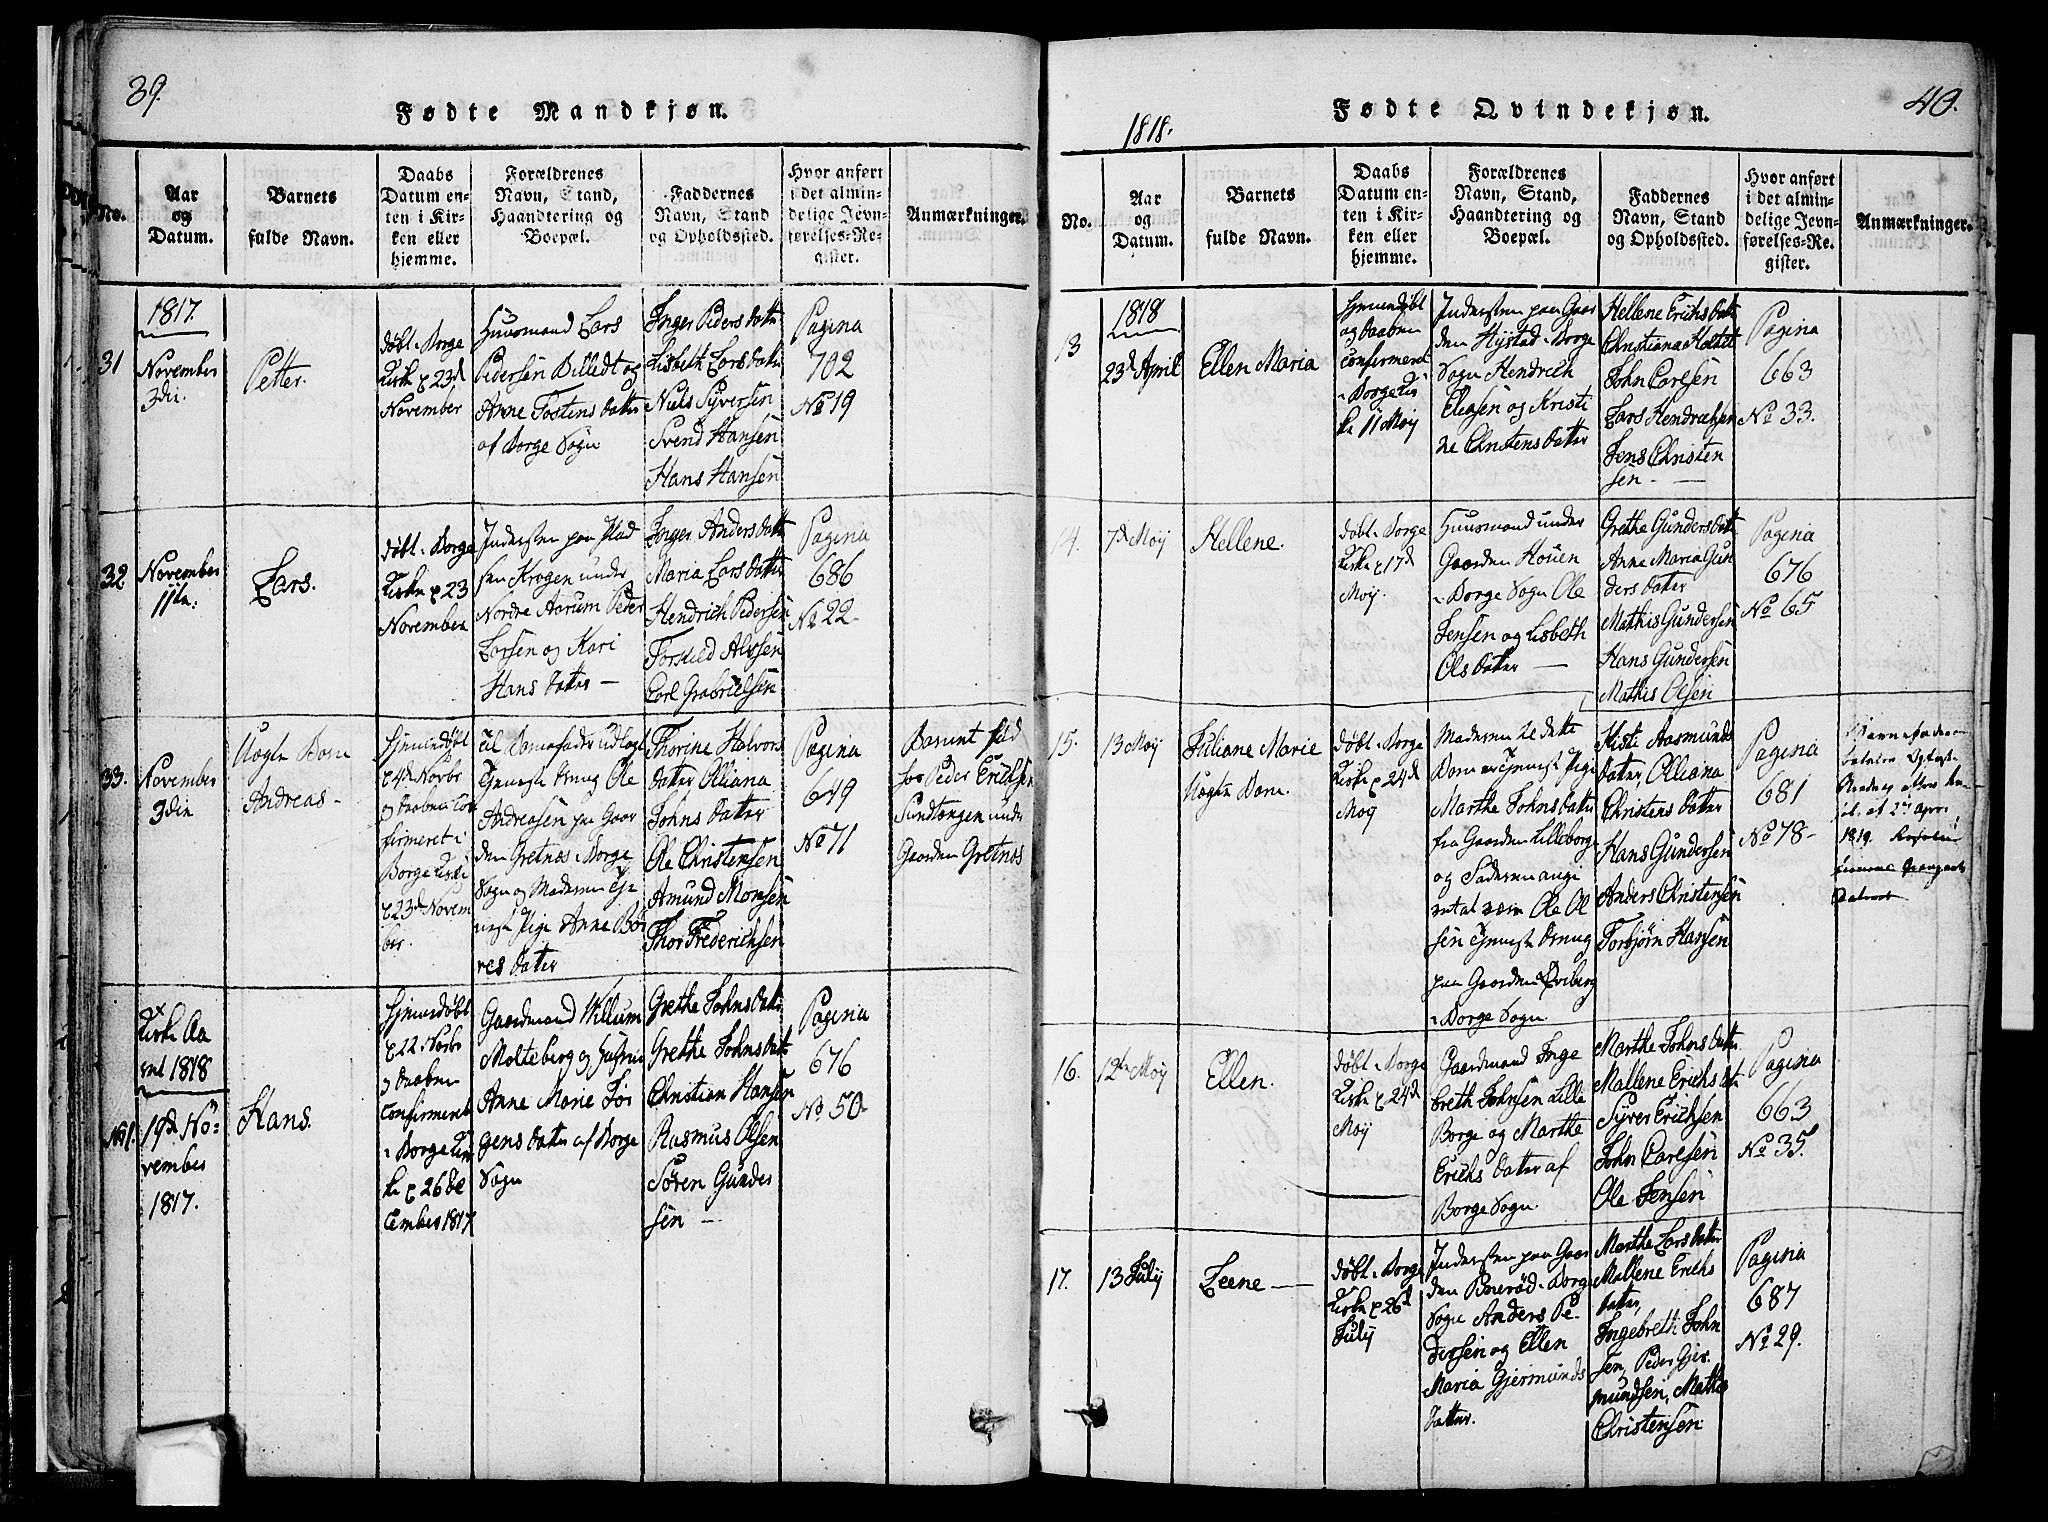 39.
Fødte Mandkjøn.
No.
Aar
og
Datum.
Barnets
fulde Navn.
Daabs
Datum en-
ten i Kir-
ken eller
hjemme.
Forældrenes
Navn, Stand,
Haandtering og
Boepæl.
Faddernes
Navn, Stand
og Opholdssted.
Hvor anført
i det almin-
delige Jevn-
førelses-Re-
gister.
Anmærkninger.
1817.
31
November
3die.
Petter.
døbt i Borge
Kirke d 23d
November
Huusmand Lars
Pedersen Billedt og
Anne Tostensdatter
af Borge Sogn
Inger Pedersdatter
Lisbeth Larsdatter
Niels Syversen
Svend Hansen
Hans Hansen
Pagina
702
No 19
32
November
11te.
Lars.
døbt i Borge
Kirke d 23
November
Inderster paa Plad
sen Krogen under
Nordre Aarum Peder
Larsen og Kari
Hansdatter —
Inger Andersdatter
Maria Larsdatter
Hendrich Pedersen
Torskild Alvsen
Carl Grabrielsen
Pagina
686
No 22
33.
November
3die
Uægte Barn
Andreas —
Hjemmedøbt
d 4de Novbr
og Daaben con
firmeret i
Borge Kirke
d 23d Novem
ber.
til Barnefader udlagt
Ole
Andreasen paa Gaar
den Gretnæs i Borge
Sogn og Moderen
Pige Anne Bør
resdatter
Thorine Halvors
datter Olliana
Johnsdatter
Ole Christensen
Amund Monsen
Thor Frederichsen
Pagina
649
No 71
Barnet fød
hos Peder Erichsen
Sundtangen under
Gaarden Gretnæs
Kirke Aa
ret 1818
No 1.
19de No-
vember
1817.
Hans.
Hjemmedøbt
d 22 Novbr
og Daaben
confirmeret
i Borge Kir
ke d 26 De
cember 1817
Gaardmand Willum
Molteberg og Hustrue
Anne Marie Jør
gensdatter af Borge
Sogn
Grethe Johnsdatter
Grethe Johnsdatter
Christian Hansen
Rasmus Olsen
Søren Gunder
sen —
Pagina
676
No 50
40.
Fødte Qvindekjøn.
1818.
No.
Aar
og
Datum.
Barnets
fulde Navn.
Daabs
Datum en-
ten i Kir-
ken eller
hjemme.
Forældrenes
Navn, Stand,
Haandtering og
Boepæl.
Faddernes
Navn, Stand
og Opholdssted.
Hvor anført
i det almin-
delige Jevn-
førelses-Re-
gister.
Anmærkninger.
1818
13
23d April
Ellen Maria
Hjemmedøbt
og Daaben
confirmeret
i Borge Kir
ke 11 Maij
Inderster paa Gaar
den Hystad i Borge
Sogn Hendrich
Eliasen og Kristi
ne Christensdatter
Hellene Erichsdatter
Christiana Holtet
John Carlsen
Lars Hendrichsen
Jens Christen
sen —
Pagina
663
No 33.
14.
7de Maij
Hellene.
døbt i Borge
Kirke d 17d
Maij.
Huusmand under
Gaarden Houen
i Borge Sogn Ole
Jensen og Lisbeth
Olsdatter —
Grethe Gundersdatter
Anne Maria Gun
dersdatter
Mathis Gundersen
Hans Gundersen
Mathis Olsen
Pagina
676
No 65
15.
13 Maij
Juliane Marie
Uægte Barn.
døbt i Borge
Kirke d 24d
Maij
Moderen til dette
Barn er Pige
Marthe Johnsdatter
fra Gaarden Lilleborge
og Faderen angi
vet at være Ole Ol
sen
paa Gaarden
i Borge Sogn.
Kisti Aasmunds
datter, Olliana
Christensdatter
Hans Gundersen
Anders Christensen
Torbjørn Hansen
Pagina
681
No 78 —
Barnefaderen
1819.
16.
12te Maij
Ellen.
døbt i Borge
Kirke d 24d
Maij
Gaardmand Inge
breth Johnsen Lille
Borge og Marthe
Erichsdatter af
Borge Sogn.
Marthe Johnsdatter
Mallene Erichsdatter
Syver Erichsen
John Carlsen
Ole Jensen
Pagina
663
No 35.
17.
13 Julij
Leene —
døbt i Borge
Kirke d 26d
Julij
Inderster paa Gaar
den Bnerød i Borge
Sogn Anders Pe
dersen og Ellen
Maria Gjermunds
datter.
Marthe Larsdatter
Mallene Erichs
datter,
Ingebreth John
sen, Peder Gjer
mundsen, Mathis
Christensen
Pagina
687
No 29.